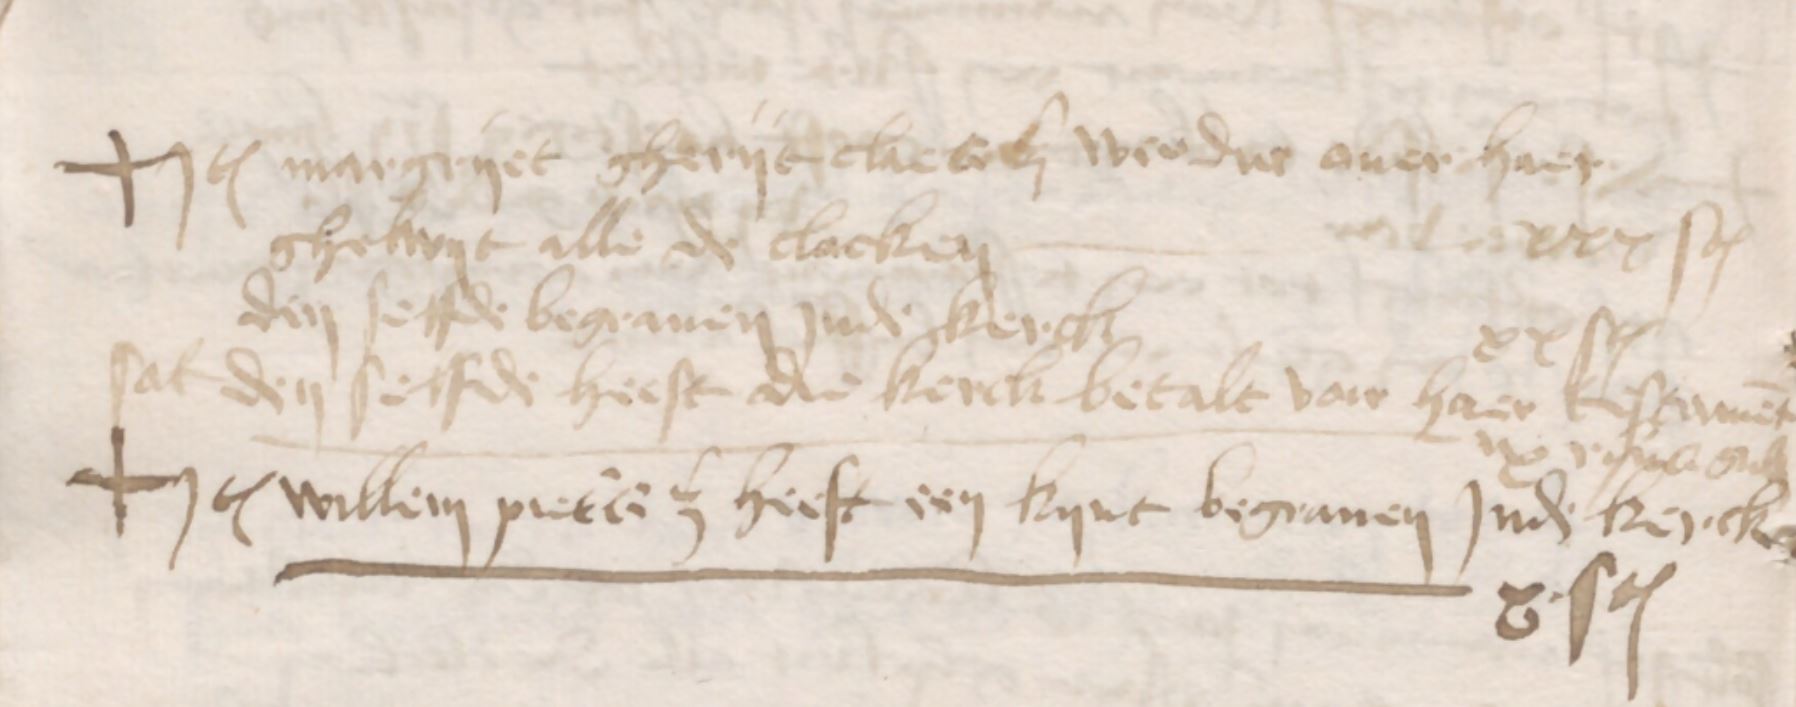 Itē margrijet gherijt claessz weeduwe ouer haer
gheluyt alle de clocken xxx st
den selfde begrauen inde kerck
xx st
sat den selfde heeft die kerck betalt voir haer testamēt
Itē willem pieterszn heeft een kijnt begrauen Inde kercke
x st